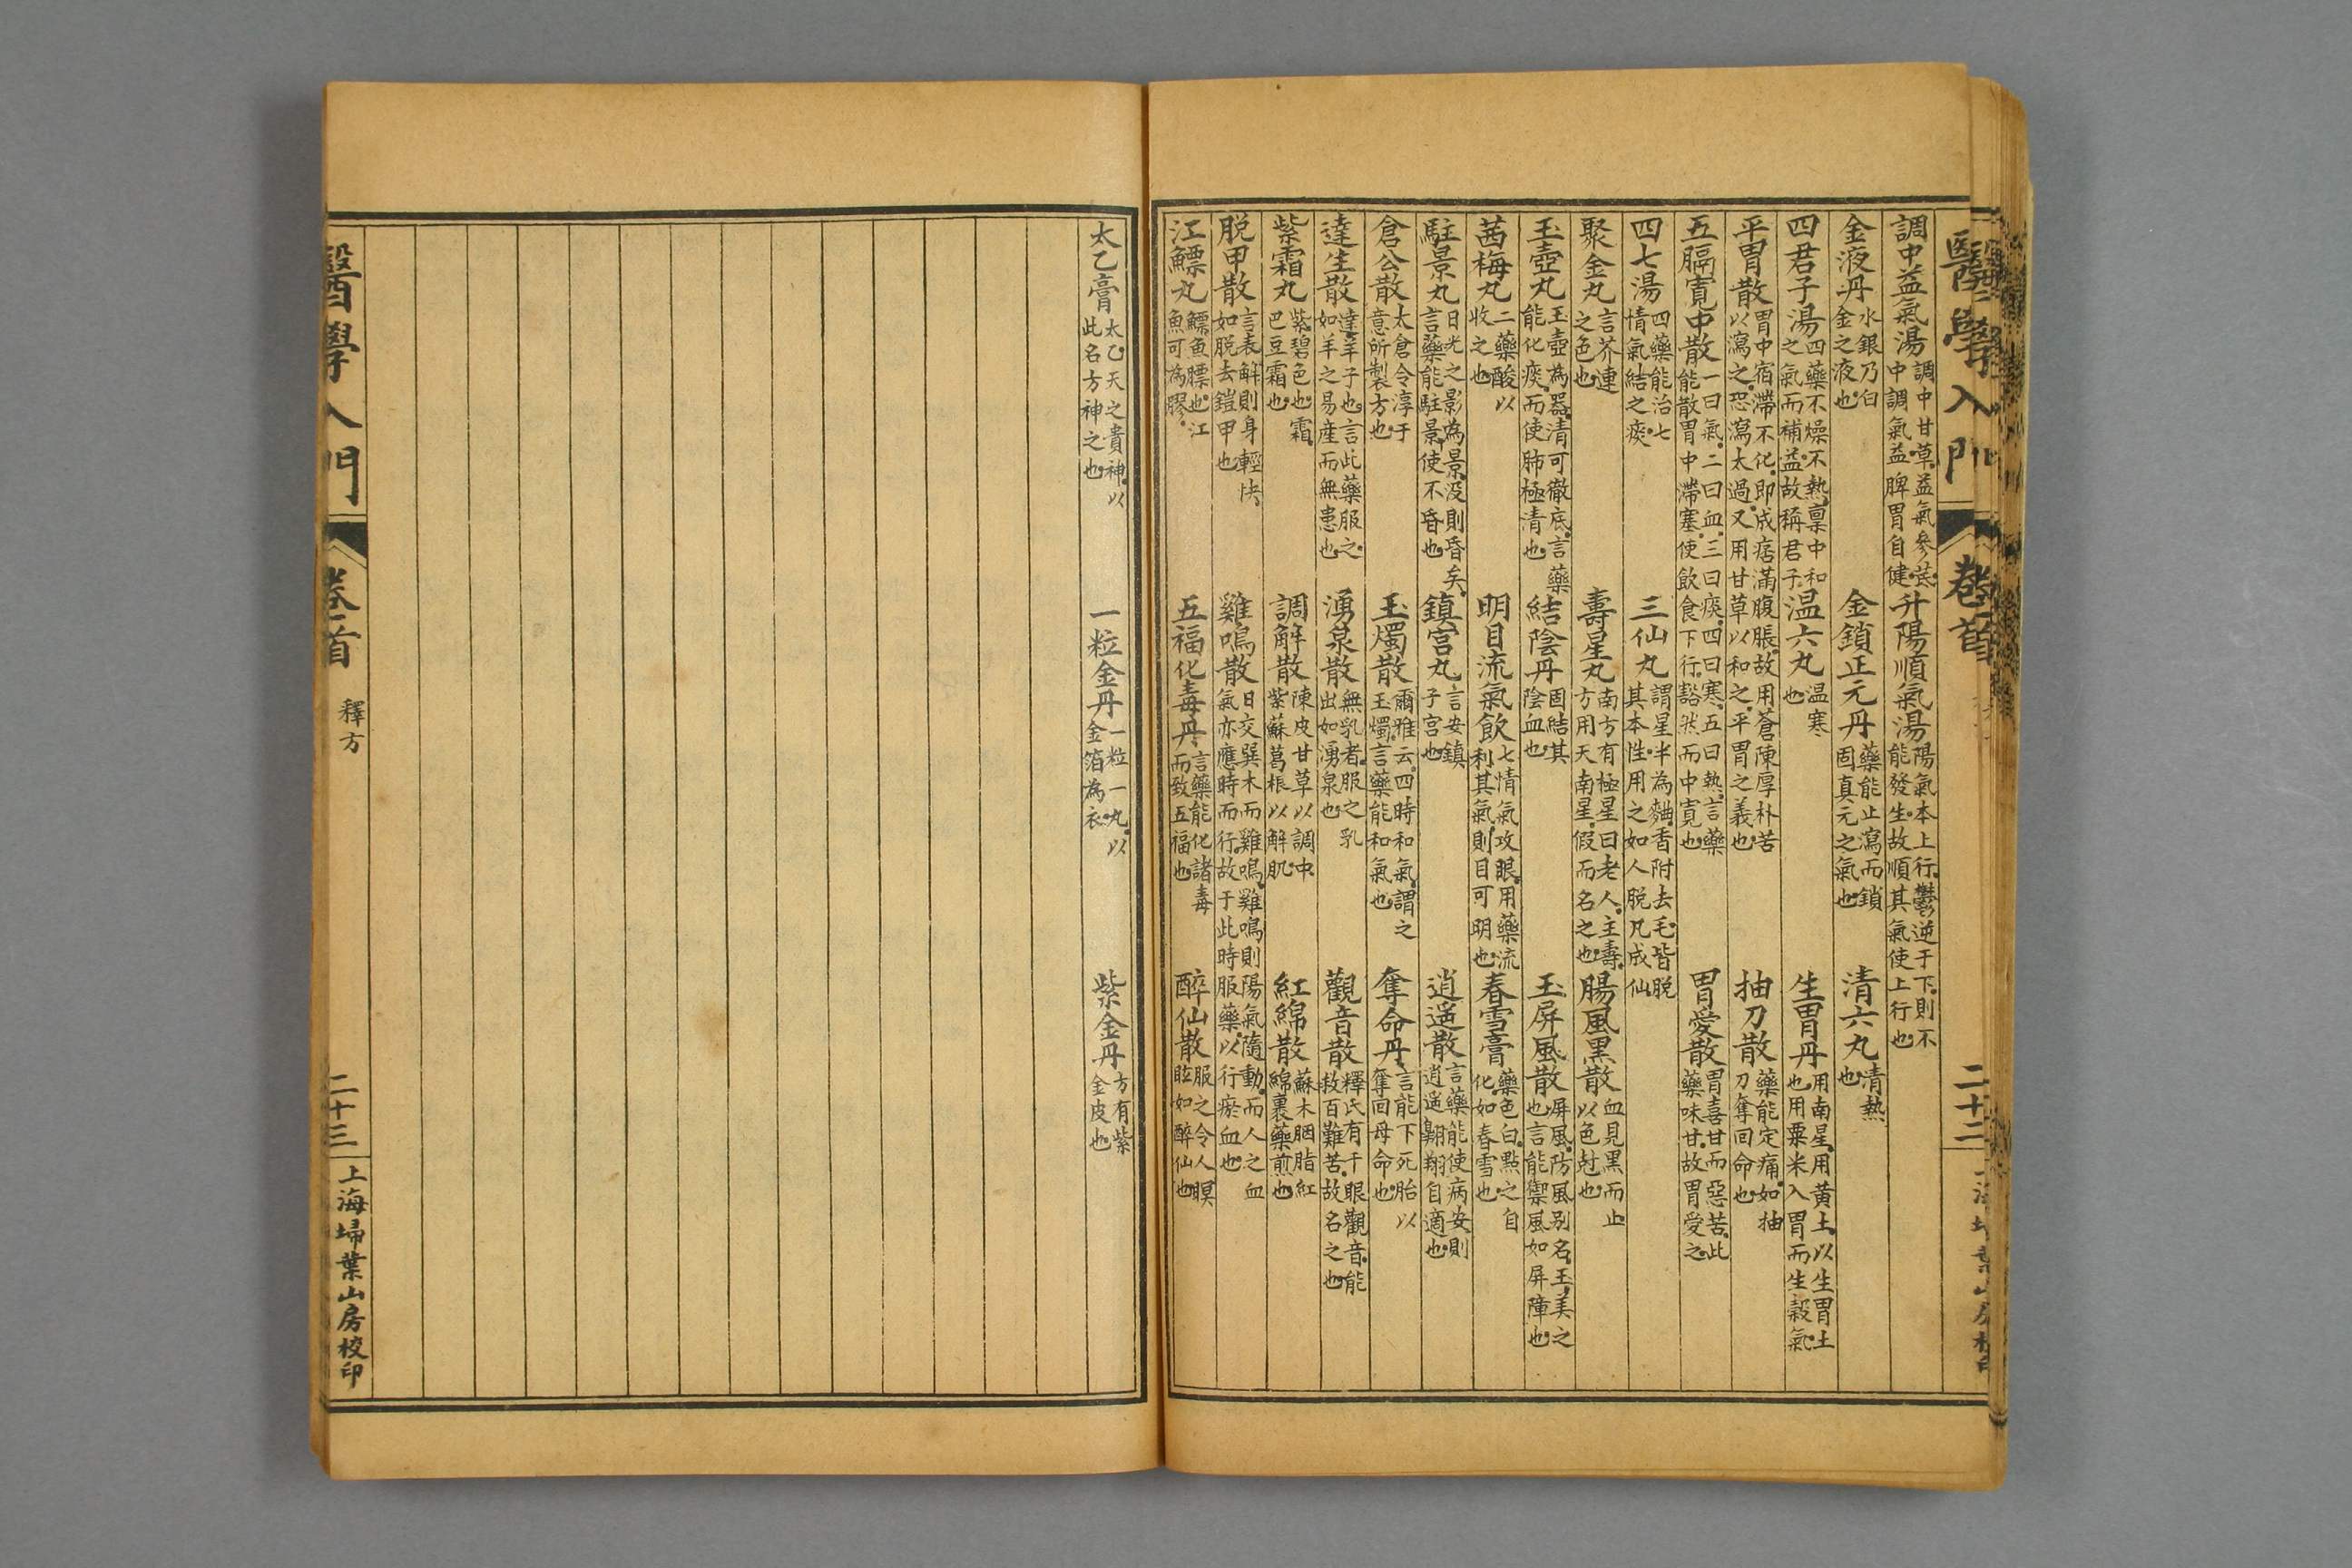 醫學入門 卷首 二十二
調中益氣湯 調中甘草益氣參芪中調氣益脾胃自健 升陽順氣湯 陽氣本上行鬱逆于下則不能發生故順其氣使上行也
金液丹 水銀乃白金之液也 金鎖正元丹 藥能止瀉而鎖固真元之氣也 清六丸 清熱也
四君子湯 四藥不燥不熱稟中和之氣而補益故稱君子 温六丸 温寒也 生胃丹 用南星用黄土以生胃土也用粟米入胃而生穀氣
平胃散 胃中宿滯不化即成痞滿腹脹故用蒼陳厚朴苦以瀉之恐瀉太過又用甘草以和之平胃之義也 抽刀散 藥能定痛如抽刀奪回命也
五膈寛中散 一曰氣二曰血三曰痰四曰寒五曰熱言藥能散胃中滯塞使飲食下行豁然而中寛也 胃愛散 胃喜甘而惡苦此藥味甘故胃愛之
四七湯 四藥能治七情氣結之痰 三仙丸 謂星半為麯香附去毛皆脱其本性用之如人脱凡成仙
聚金丸 言芥連之色也 壽星丸 南方有極星曰老人主壽方用天南星假而名之也 腸風黑散 血見黑而止以色尅也
玉壺丸 玉壺為器清可徹底言藥能化痰而使肺極清也 結陰丹 固結其陰血也 玉屏風散 屏風防風别名玉美之也言能禦風如屏障也
茜梅丸 二藥酸以收之也 明目流氣飲 七情氣攻眼用藥流利其氣則目可明也 春雪膏 藥色白點之自化如春雪也
駐景丸 日光之影為景没則昏矣言藥能駐景使不昏也 鎮宫丸 言安鎮子宫也 逍遥散 言藥能使病安則逍遥翺翔自適也
倉公散 太倉令淳于意所製方也 玉燭散 爾雅云四時和氣謂之玉燭言藥能和氣也 奪命丹 言能下死胎以奪回母命也
達生散 達羊子也言此藥服之如羊之易産而無患也 湧泉散 無乳者服之乳出如湧泉也 觀音散 釋氏有千眼觀音能救百難苦故名之也
紫霜丸 紫碧色也霜巴豆霜也 調解散 陳皮甘草以調中紫蘇葛根以解肌 紅綿散 蘇木胭脂紅綿裹藥煎也
脱甲散 言表解則身輕快如脱去鎧甲也 雞鳴散 日交巽木而雞鳴雞鳴則陽氣隨動而人之血氣亦應時而行故于此時服藥以行瘀血也
江鰾丸 鰾魚膘也江魚可為膠 五福化毒丹 言藥能化諸毒而致五福也 醉仙散 服之令人瞑眩如醉仙也
太乙膏 太乙天之貴神以此名方神之也 一粒金丹 一粒一丸以金箔為衣 紫金丹 方有紫金皮也
醫學入門 卷首 釋方 二十三 上海埽葉山房校印